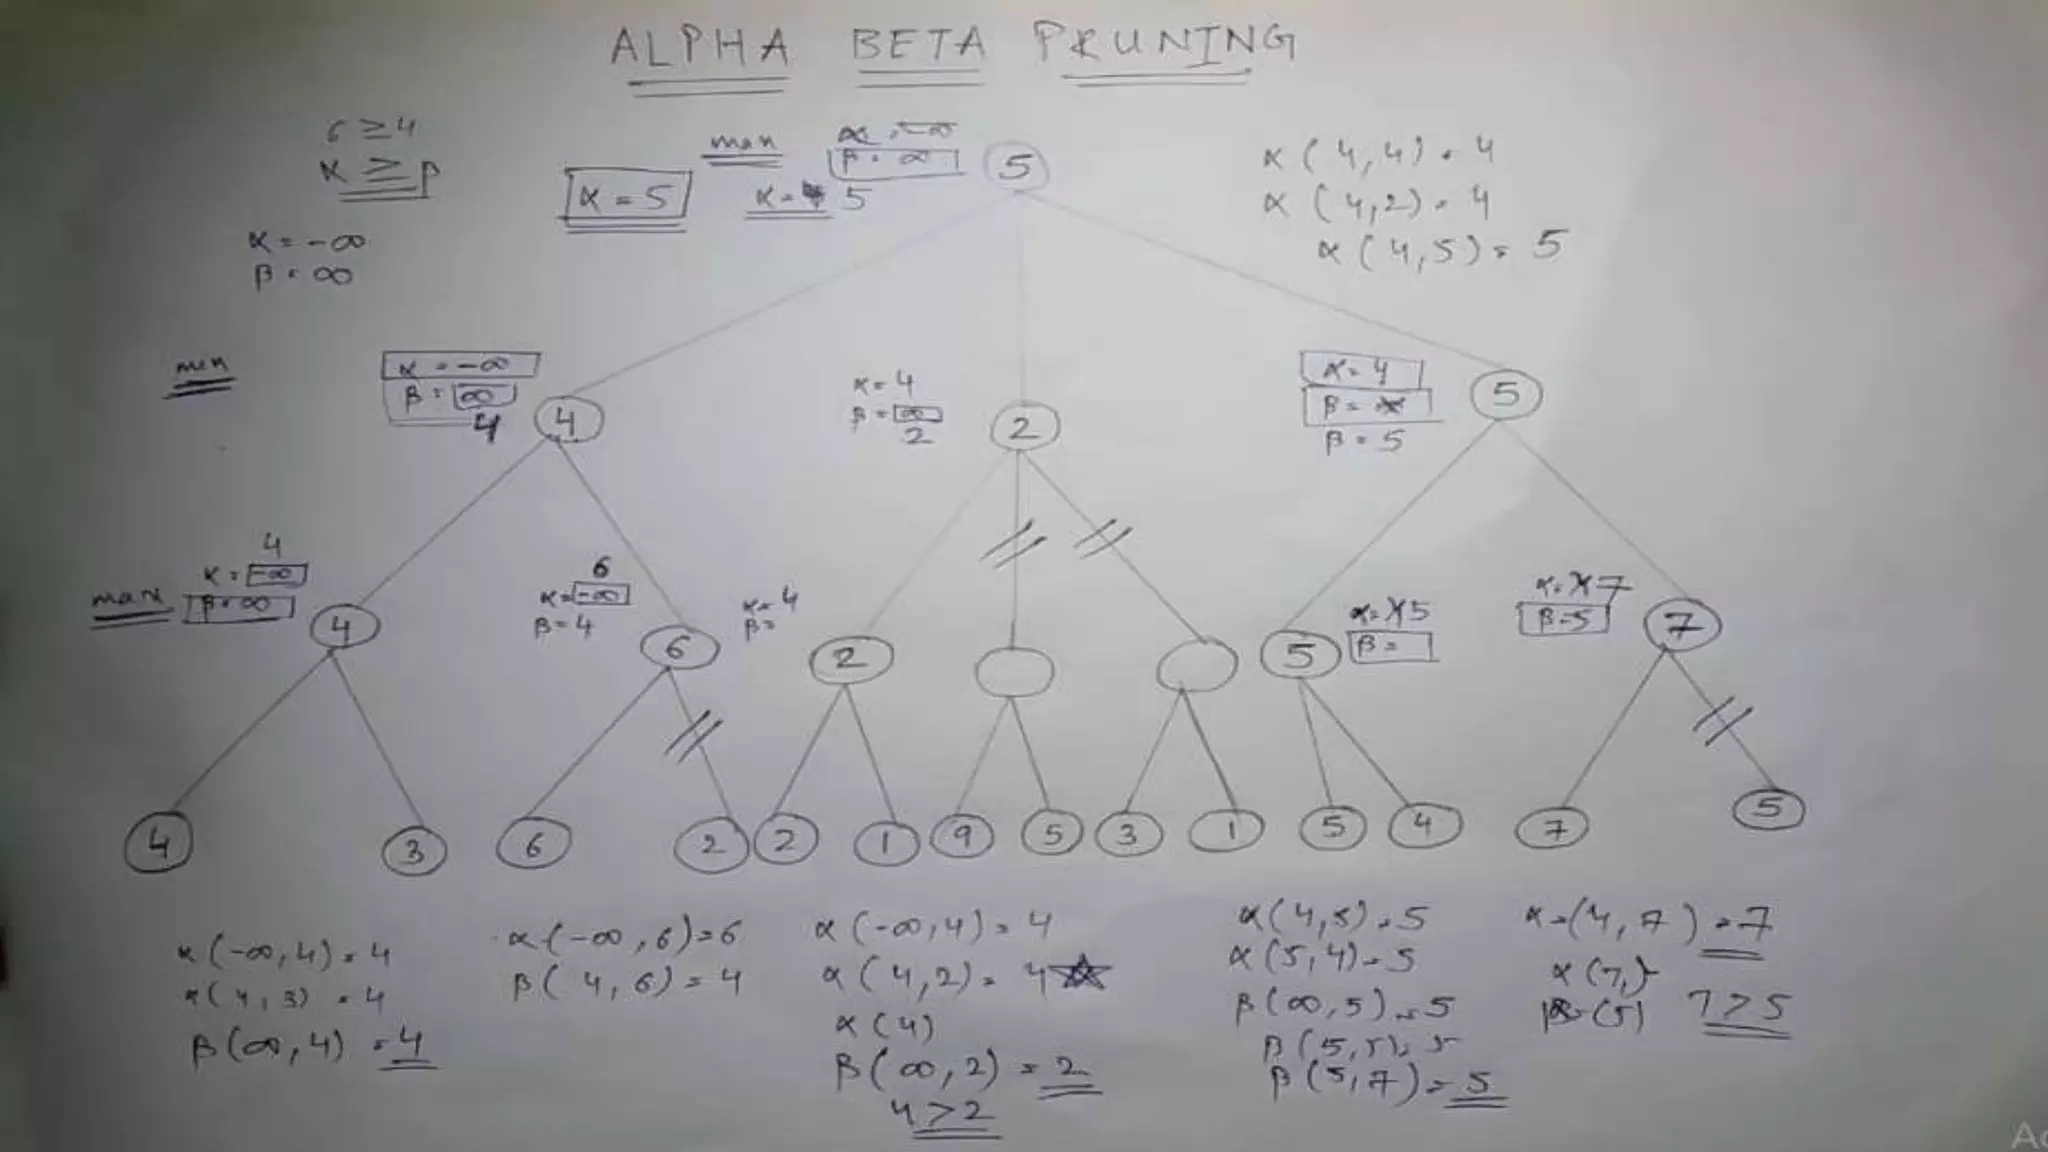 ALPHA BETA PRUNING
6 ≥ 4
α ≥ β
α = -∞
β = ∞
max
α = -∞
β = ∞
α = 5
α = 4 5
5
α (4,4) = 4
α (4,2) = 4
α (4,5) = 5
min
α = -∞
β = ∞
4
4
α = 4
β = ∞
2
2
α = 4
β = ∞
β = 5
5
max
4
α = -∞
β = ∞
4
6
α = -∞
β = 4
6
α = 4
β =
2
5
α = 5
β =
α = 7
β = 5
7
4 3 6 2 2 1 9 5 3 1 5 4 7 5
α (-∞,4) = 4
α (4,3) = 4
β (∞,4) = 4
α (-∞,6) = 6
β (4,6) = 4
α (-∞,4) = 4
α (4,2) = 4
α (4)
β (∞,2) = 2
4 > 2
α (4,5) = 5
α (5,4) = 5
β (∞,5) = 5
β (5,5) = 5
β (5,7) = 5
α = (4,7) = 7
α (7,)
β = (5) 7 > 5